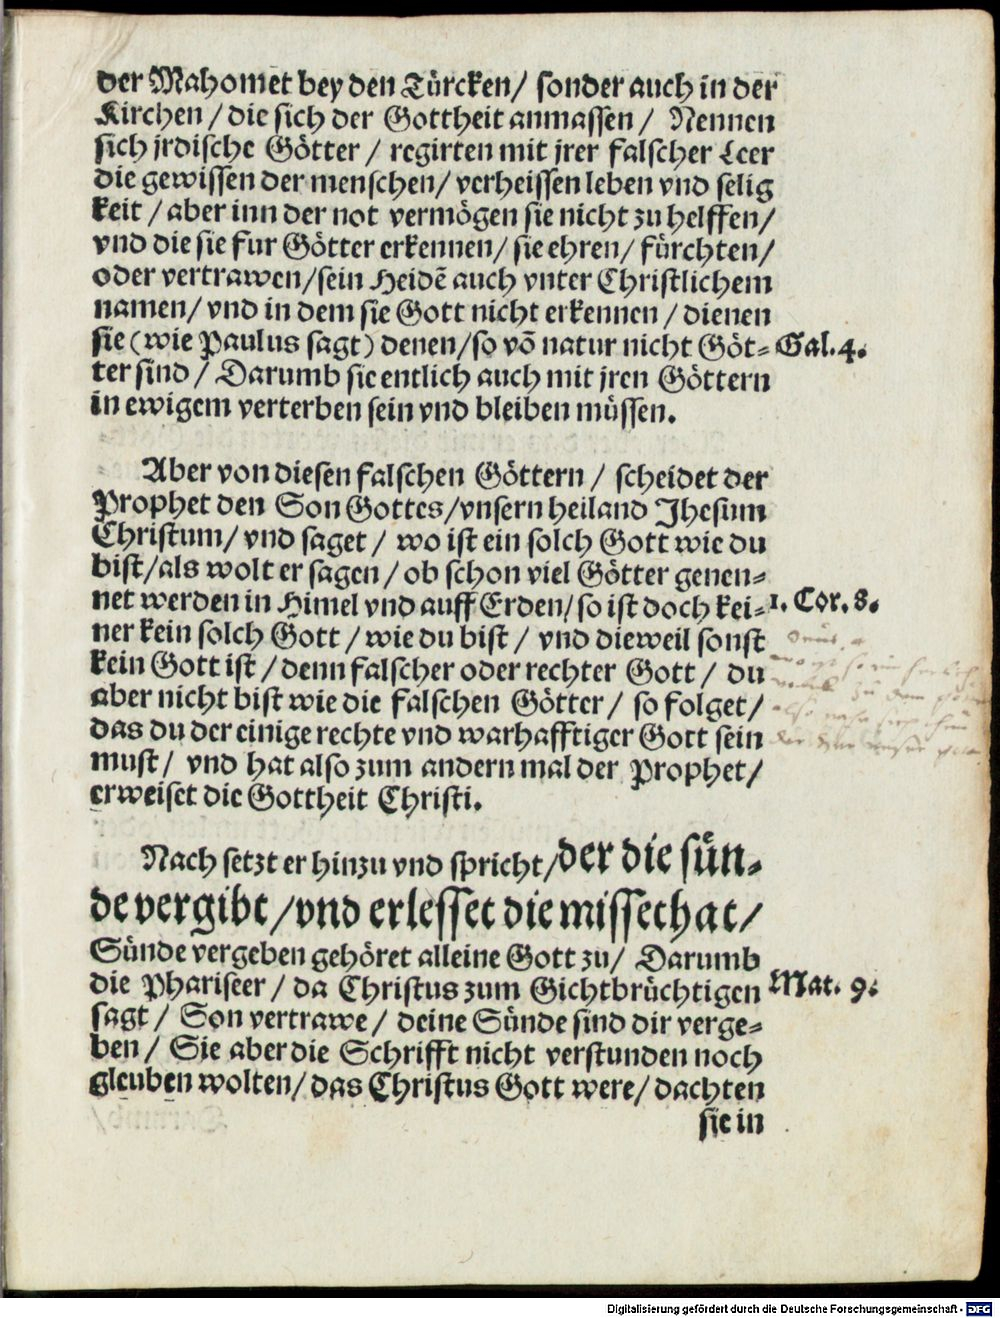 der Mahomet bey den Türcken/ sonder auch in der
Kirchen / die sich der Gottheit anmassen / Nennen
sich jrdische Götter / regirten mit jrer falscher Leer
die gewissen der menschen/ verheissen leben vnd selig
keit / aber inn der not vermögen sie nicht zu helffen/
vnd die sie fur Götter erkennen/ sie ehren/ fürchten/
oder vertrawen/sein Heidē auch vnter Christlichem
namen/ vnd in dem sie Gott nicht erkennen / dienen
sie (wie Paulus sagt) denen/so vō natur nicht Göt= Gal. 4.
ter sind / Darumb sie entlich auch mit jren Göttern
in ewigem verterben sein vnd bleiben müssen.
Aber von diesen falschen Göttern / scheidet der
Prophet den Son Gottes/vnsern heiland Jhesum
Christum/ vnd saget / wo ist ein solch Gott wie du
bist/als wolt er sagen / ob schon viel Götter genen=
net werden in Himel vnd auff Erden/so ist doch kei= 1. Cor. 8.
ner kein solch Gott / wie du bist / vnd dieweil sonst
kein Gott ist / denn falscher oder rechter Gott / du
aber nicht bist wie die falschen Götter / so folget/
das du der einige rechte vnd warhafftiger Gott sein
must/ vnd hat also zum andern mal der Prophet/
erweiset die Gottheit Christi.
Nach setzt er hinzu vnd spricht/der die sün=
de vergibt/vnd erlesset die missethat/
Sünde vergeben gehöret alleine Gott zu/ Darumb
die Phariseer / da Christus zum Gichtbrüchtigen Mat. 9.
sagt / Son vertrawe / deine Sünde sind dir verge=
ben / Sie aber die Schrifft nicht verstunden noch
gleuben wolten/ das Christus Gott were/ dachten
sie in
Digitalisierung gefördert durch die Deutsche Forschungsgemeinschaft - DFG